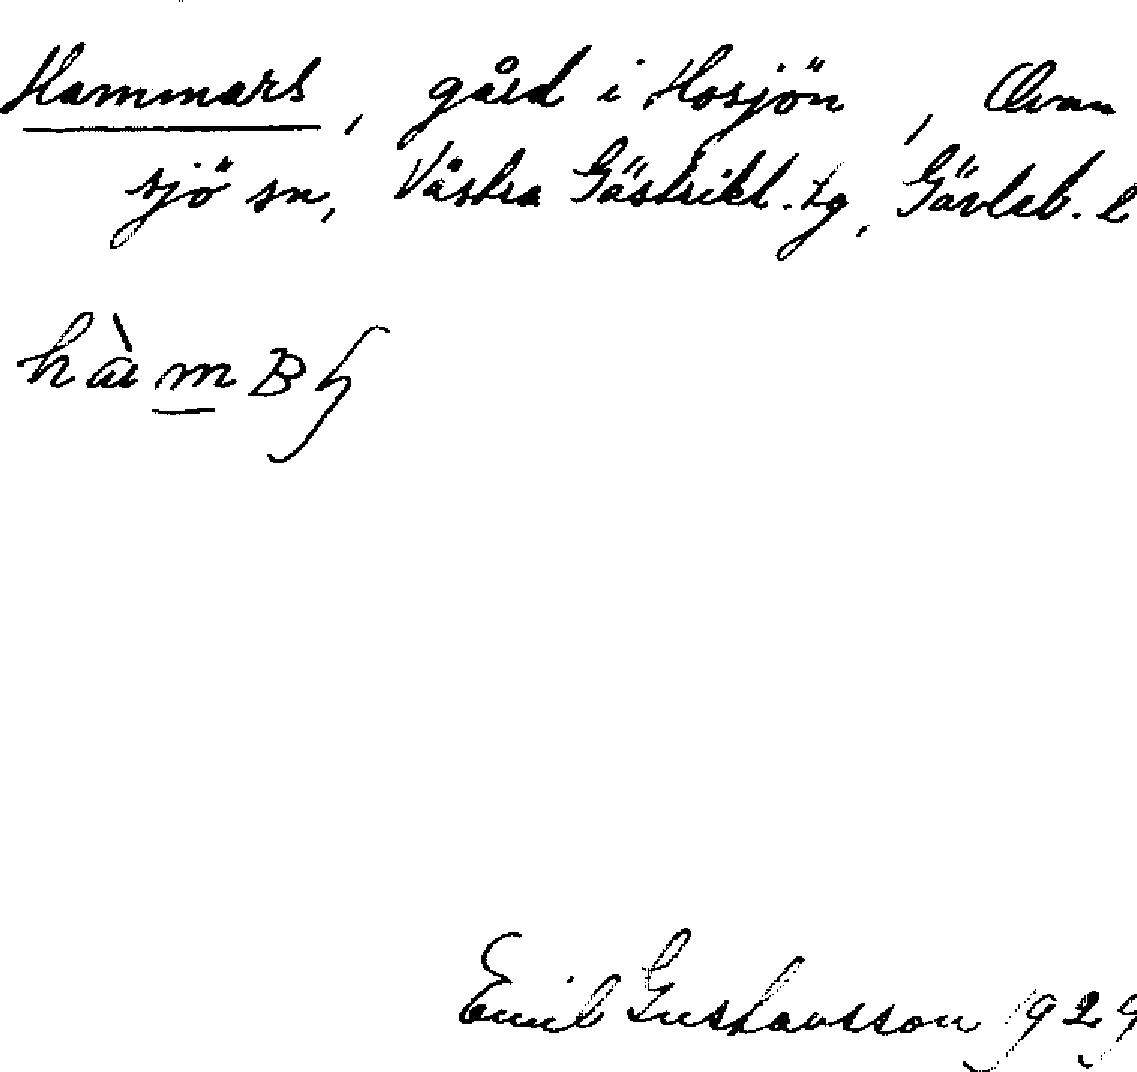 Hammars, gård i Hosjön, Ovan
sjö sn, Västra Gästrikl. tg, Gävleb. l
Emil Gustavsson 1929